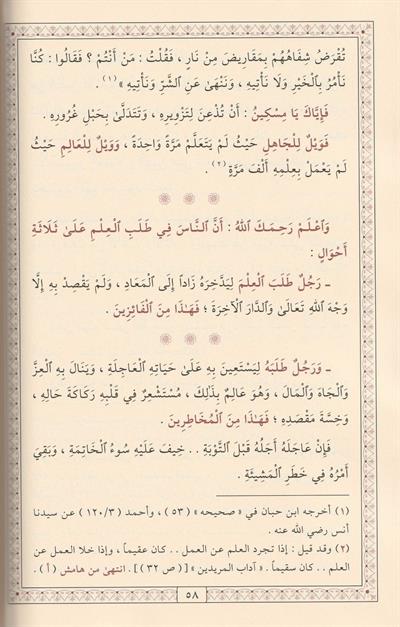 تُقْرَضُ شِفَاهُهُمْ بِمَقَارِيضَ مِنْ نَارٍ ، فَقُلْتُ : مَنْ أَنْتُمْ ؟ فَقَالُوا : كُنَّا
نَأْمُرُ بِٱلْخَيْرِ وَلَا نَأْتِيهِ ، وَنَنْهَىٰ عَنِ ٱلشَّرِّ وَنَأْتِيهِ » (١) .
فَإِيَّاكَ يَا مِسْكِينُ : أَنْ تُذْعِنَ لِتَزْوِيرِهِ ، وَتَتَدَلَّىٰ بِحَبْلِ غُرُورِهِ .
فَوَيْلٌ لِلْجَاهِلِ حَيْثُ لَمْ يَتَعَلَّمْ مَرَّةً وَاحِدَةً ، وَوَيْلٌ لِلْعَالِمِ حَيْثُ
لَمْ يَعْمَلْ بِعِلْمِهِ أَلْفَ مَرَّةٍ (٢) .
وَٱعْلَمْ رَحِمَكَ ٱللهُ : أَنَّ ٱلنَّاسَ فِي طَلَبِ ٱلْعِلْمِ عَلَىٰ ثَلَاثَةِ
أَحْوَالٍ :
ـ رَجُلٌ طَلَبَ ٱلْعِلْمَ لِيَدَّخِرَهُ زَاداً إِلَى ٱلْمَعَادِ ، وَلَمْ يَقْصِدْ بِهِ إِلَّا
وَجْهَ ٱللهِ تَعَالَىٰ وَٱلدَّارَ ٱلْآخِرَةَ ؛ فَهَـٰذَا مِنَ ٱلْفَائِزِينَ .
ـ وَرَجُلٌ طَلَبَهُ لِيَسْتَعِينَ بِهِ عَلَىٰ حَيَاتِهِ ٱلْعَاجِلَةِ ، وَيَنَالَ بِهِ ٱلْعِزَّ
وَٱلْجَاهَ وَٱلْمَالَ ، وَهُوَ عَالِمٌ بِذَلِكَ ، مُسْتَشْعِرٌ فِي قَلْبِهِ رَكَاكَةَ حَالِهِ ،
وَخِسَّةَ مَقْصِدِهِ ؛ فَهَـٰذَا مِنَ ٱلْمُخَاطِرِينَ .
فَإِنْ عَاجَلَهُ أَجَلُهُ قَبْلَ ٱلتَّوْبَةِ . . خِيفَ عَلَيْهِ سُوءُ ٱلْخَاتِمَةِ ، وَبَقِيَ
أَمْرُهُ فِي خَطَرِ ٱلْمَشِيئَةِ .
(١) أخرجه ابن حبان في « صحيحه » ( ٥٣ ) ، وأحمد ( ٣/ ١٢٠ ) عن سيدنا
أنس رضي الله عنه .
(٢) وقد قيل : إذا تجرد العلم عن العمل . . كان عقيماً ، وإذا خلا العمل عن
العلم . . كان سقيماً . « آداب المريدين » [( ص ٣٢ )] . انتهىٰ من هامش ( أ ) .
٥٨